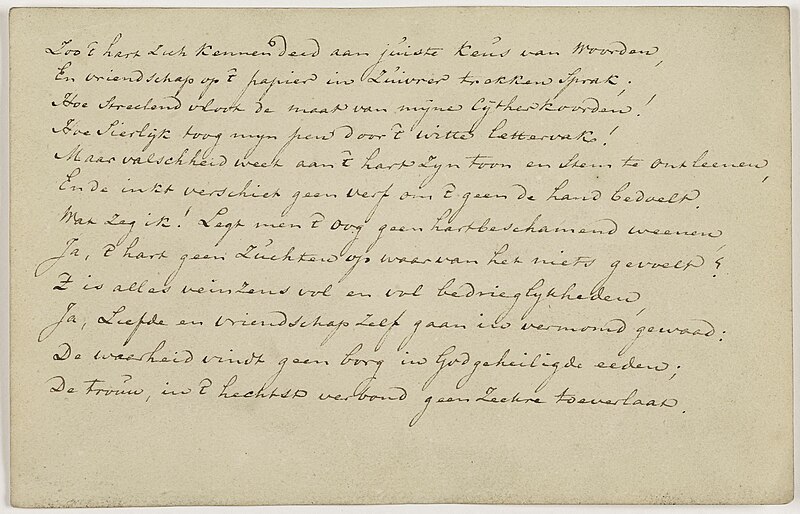 Zoo 't hart zich kennen deed aan juiste keus van woorden,
En vriendschap op 't papier in zuivrer trekken sprak;
Hoe streelend vloot de maat van mijne cÿtherkoorden!
Hoe sierlijk toog mijn pen door 't witte lettervak!
Maar valschheid weet aan 't hart zyn toon en stem te ontleenen,
En de inkt verschiet geen verf om 't geen de hand bedoelt.
Wat zeg ik! Legt men 't oog geen hartbeschamend weenen,
Ja, 't hart geen zuchten op waarvan het niets gevoelt?
't Is alles veinzens vol en vol bedrieglykheden,
Ja, Liefde en vriendschap zelf gaan in vermomd gewaad:
De waarheid vindt geen borg in Godgeheiligde eeden;
De trouw, in 't hechtst verbond geen zeekre toeverlaat.